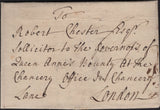 To
Robert Chester Esqr.
Sollicitor to the Governors of
Queen Anne's Bounty At the
Chancery Office In Chancery
Lane
London